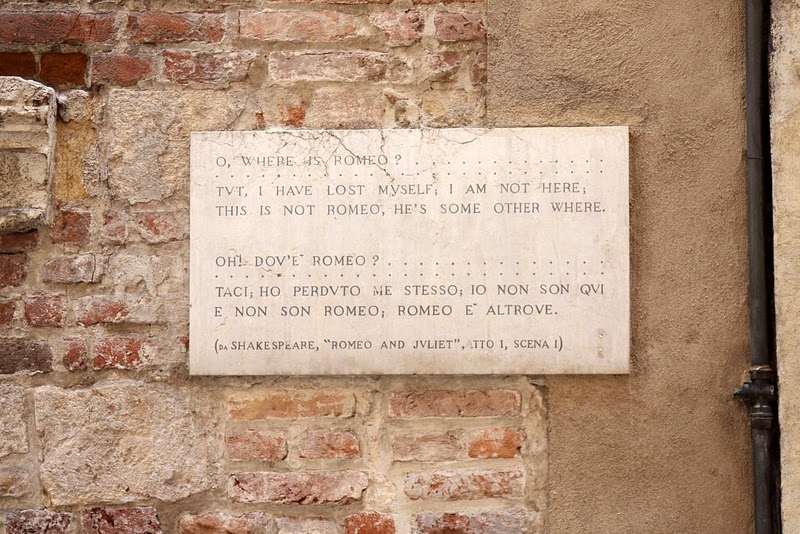 O, WHERE IS ROMEO? . . . . . . . . . . . . . .
. . . . . . . . . . . . . . . . . . . . . . . . . . . .
TVT, I HAVE LOST MYSELF; I AM NOT HERE;
THIS IS NOT ROMEO, HE'S SOME OTHER WHERE.
OH! DOV'E' ROMEO? . . . . . . . . . . . . . . . .
. . . . . . . . . . . . . . . . . . . . . . . . . . . .
TACI; HO PERDVTO ME STESSO; IO NON SON QVI
E NON SON ROMEO; ROMEO E' ALTROVE.
(DA SHAKESPEARE, "ROMEO AND JVLIET", ATTO I, SCENA I)